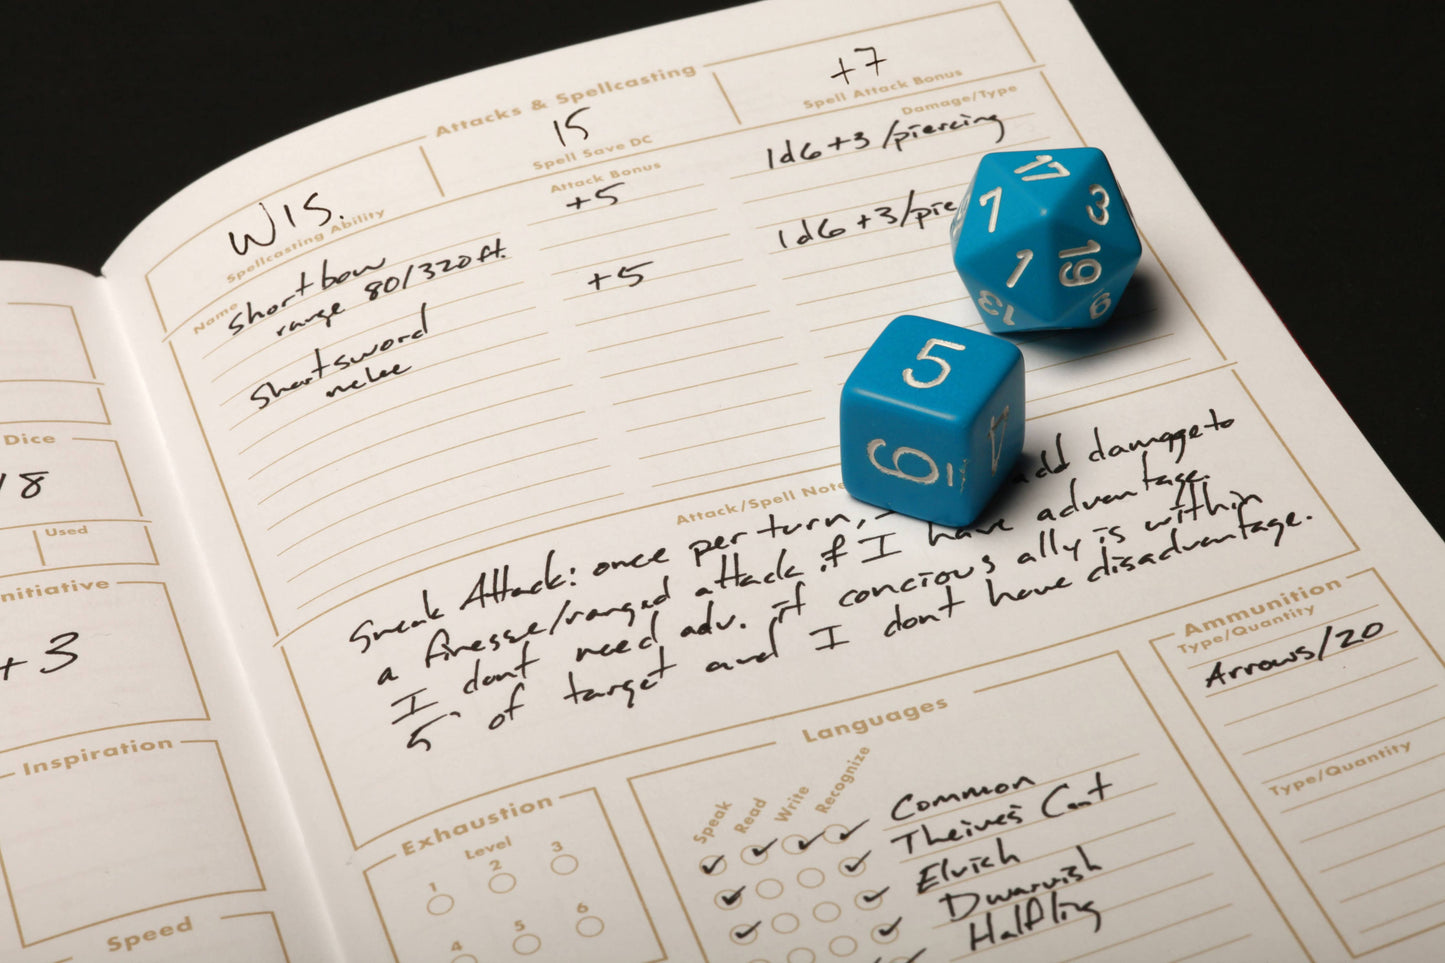 Attacks & Spellcasting
WIS.
Spellcasting Ability
15
Spell Save DC
+7
Spell Attack Bonus
Name
Attack Bonus
Damage/Type
Shortbow
+5
1d6+3/piercing
range 80/320ft.
Shortsword
+5
1d6+3/pie
melee
17
7
3
1
19
13
9
5
6
Attack/Spell Note
Sneak Attack: once per turn, I add damage to
a finesse/ranged attack if I have advantage.
I dont need adv. if concious ally is within
5' of target and I dont have disadvantage.
Dice
18
Used
nitiative
+3
Inspiration
Speed
Exhaustion
Level
1
2
3
4
5
6
Languages
Speak
Read
Write
Recognize
Common
Theives Cant
Elvish
Dwarvish
Halfling
Ammunition
Type/Quantity
Arrows/20
Type/Quantity